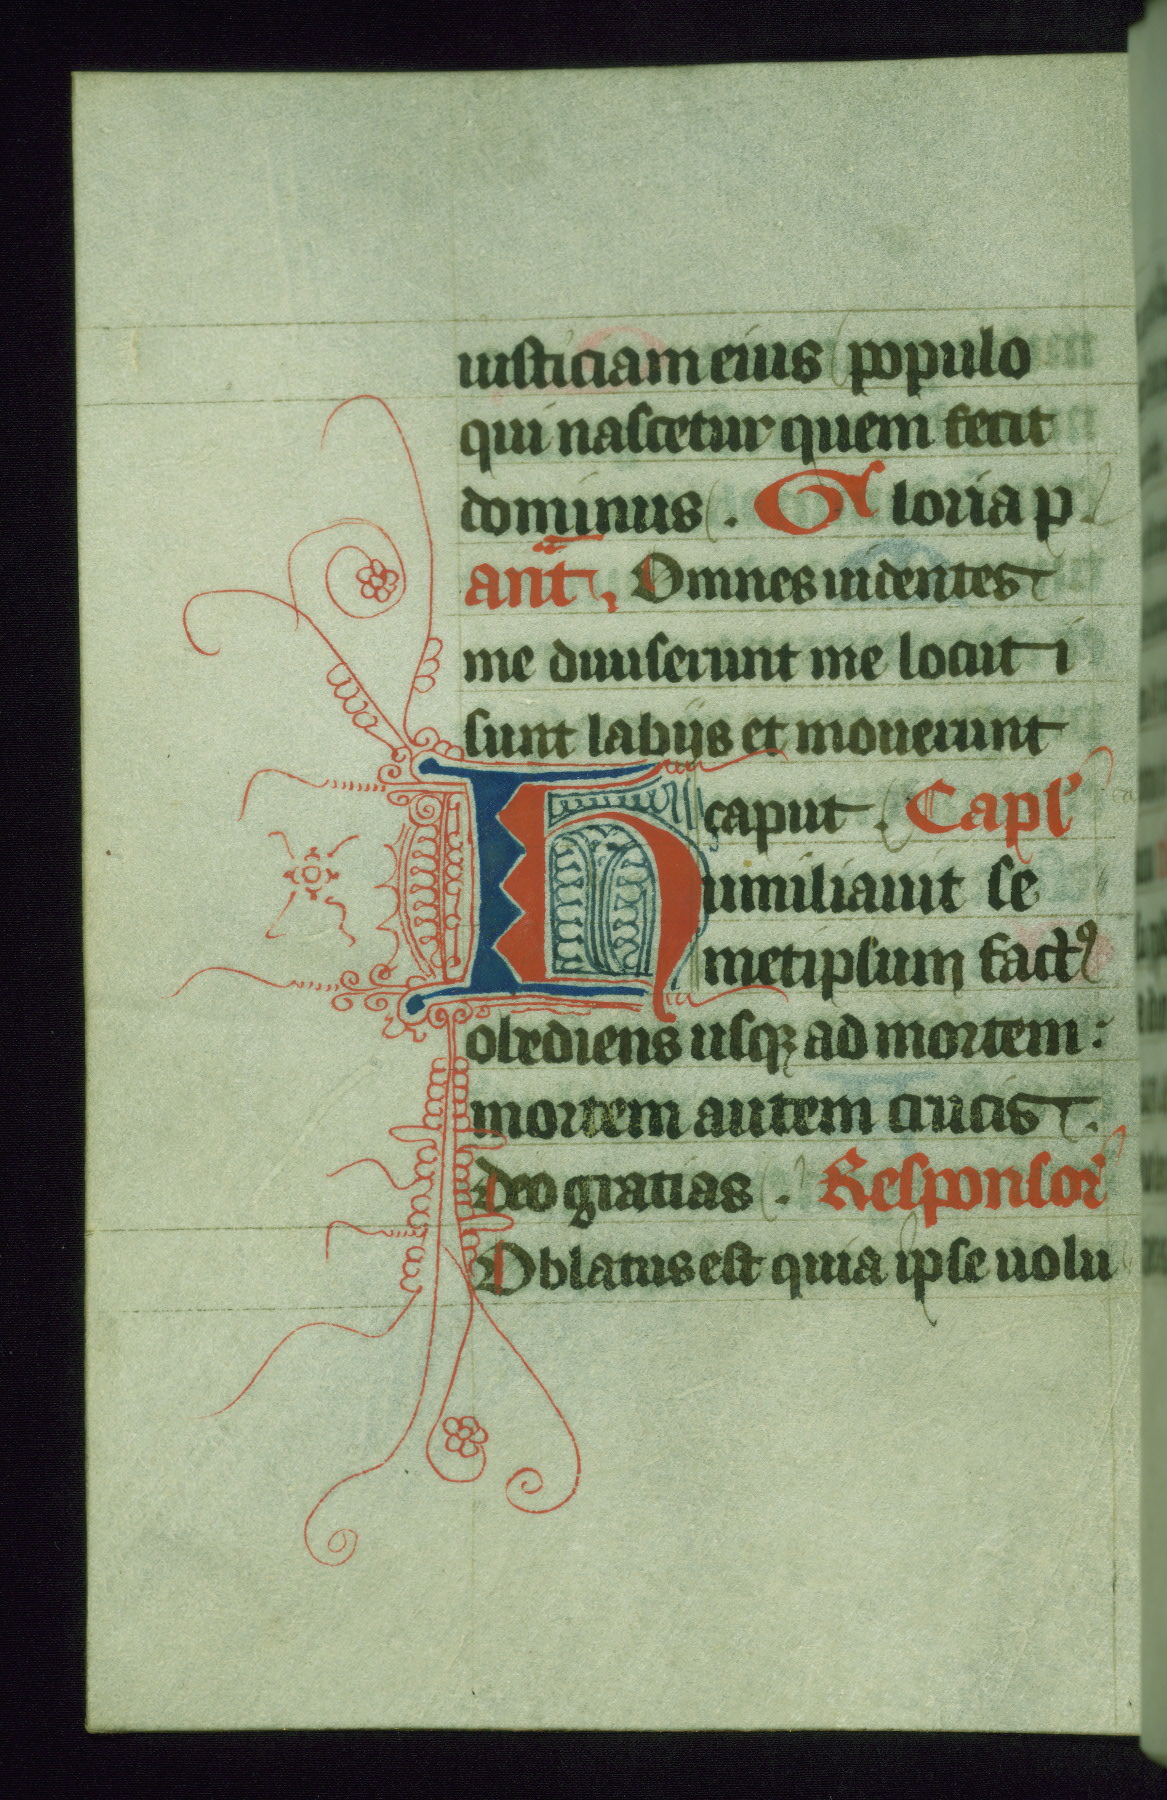 iusticiam eius populo
qui nascetur quem fecit
dominus. Gloria p.
ant̄. Omnes uidentes
me diuiserunt me locuti
sunt labijs et mouerunt
caput. Capl'
Humiliauit se
metipsum factꝰ
obediens usqꝫ ad mortem:
mortem autem crucis.
deo gratias. Responsor'
Oblatus est quia ipse uolu